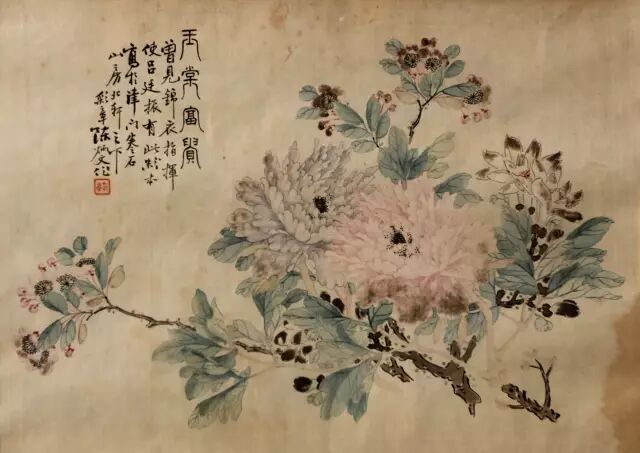 玉棠富貴
曾見錦衣指揮
使呂廷振有此粉本
寫於津門卷石
山房北軒之下
彩章陳